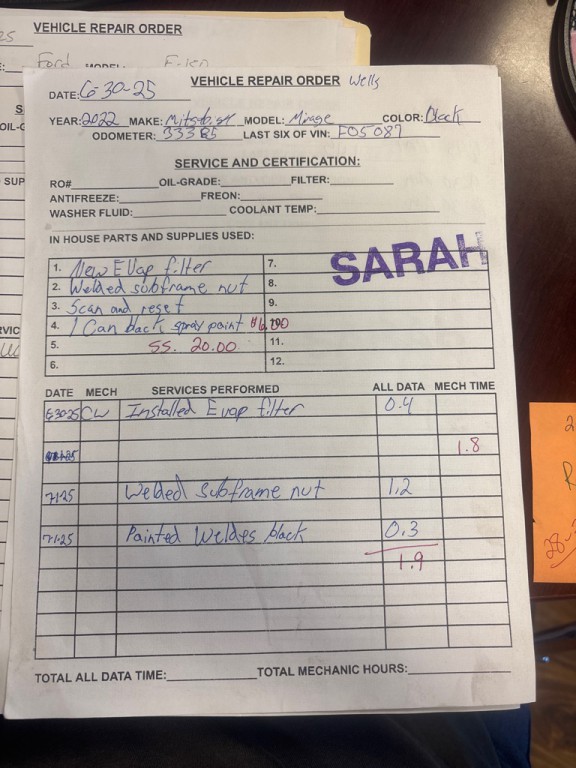 VEHICLE REPAIR ORDER
Ford MODEL:
VEHICLE REPAIR ORDER Wells
DATE: 6-30-25
YEAR: 2022 MAKE: Mitsbishi MODEL: Mirage COLOR: Black
ODOMETER: 33385 LAST SIX OF VIN: F05087
SERVICE AND CERTIFICATION:
RO# OIL-GRADE: FILTER:
ANTIFREEZE: FREON:
WASHER FLUID: COOLANT TEMP:
IN HOUSE PARTS AND SUPPLIES USED:
SARAH
1. New EVap filter 7.
2. Welded subframe nut 8.
3. Scan and reset 9.
4. 1 Can black spray paint $6.00 10.
5. SS. 20.00 11.
6. 12.
DATE MECH SERVICES PERFORMED ALL DATA MECH TIME
6-30-25 CW Installed Evap filter 0.4
1.8
7-1-25 Welded subframe nut 1.2
7-1-25 Painted Weldes black 0.3
1.9
TOTAL ALL DATA TIME: TOTAL MECHANIC HOURS: